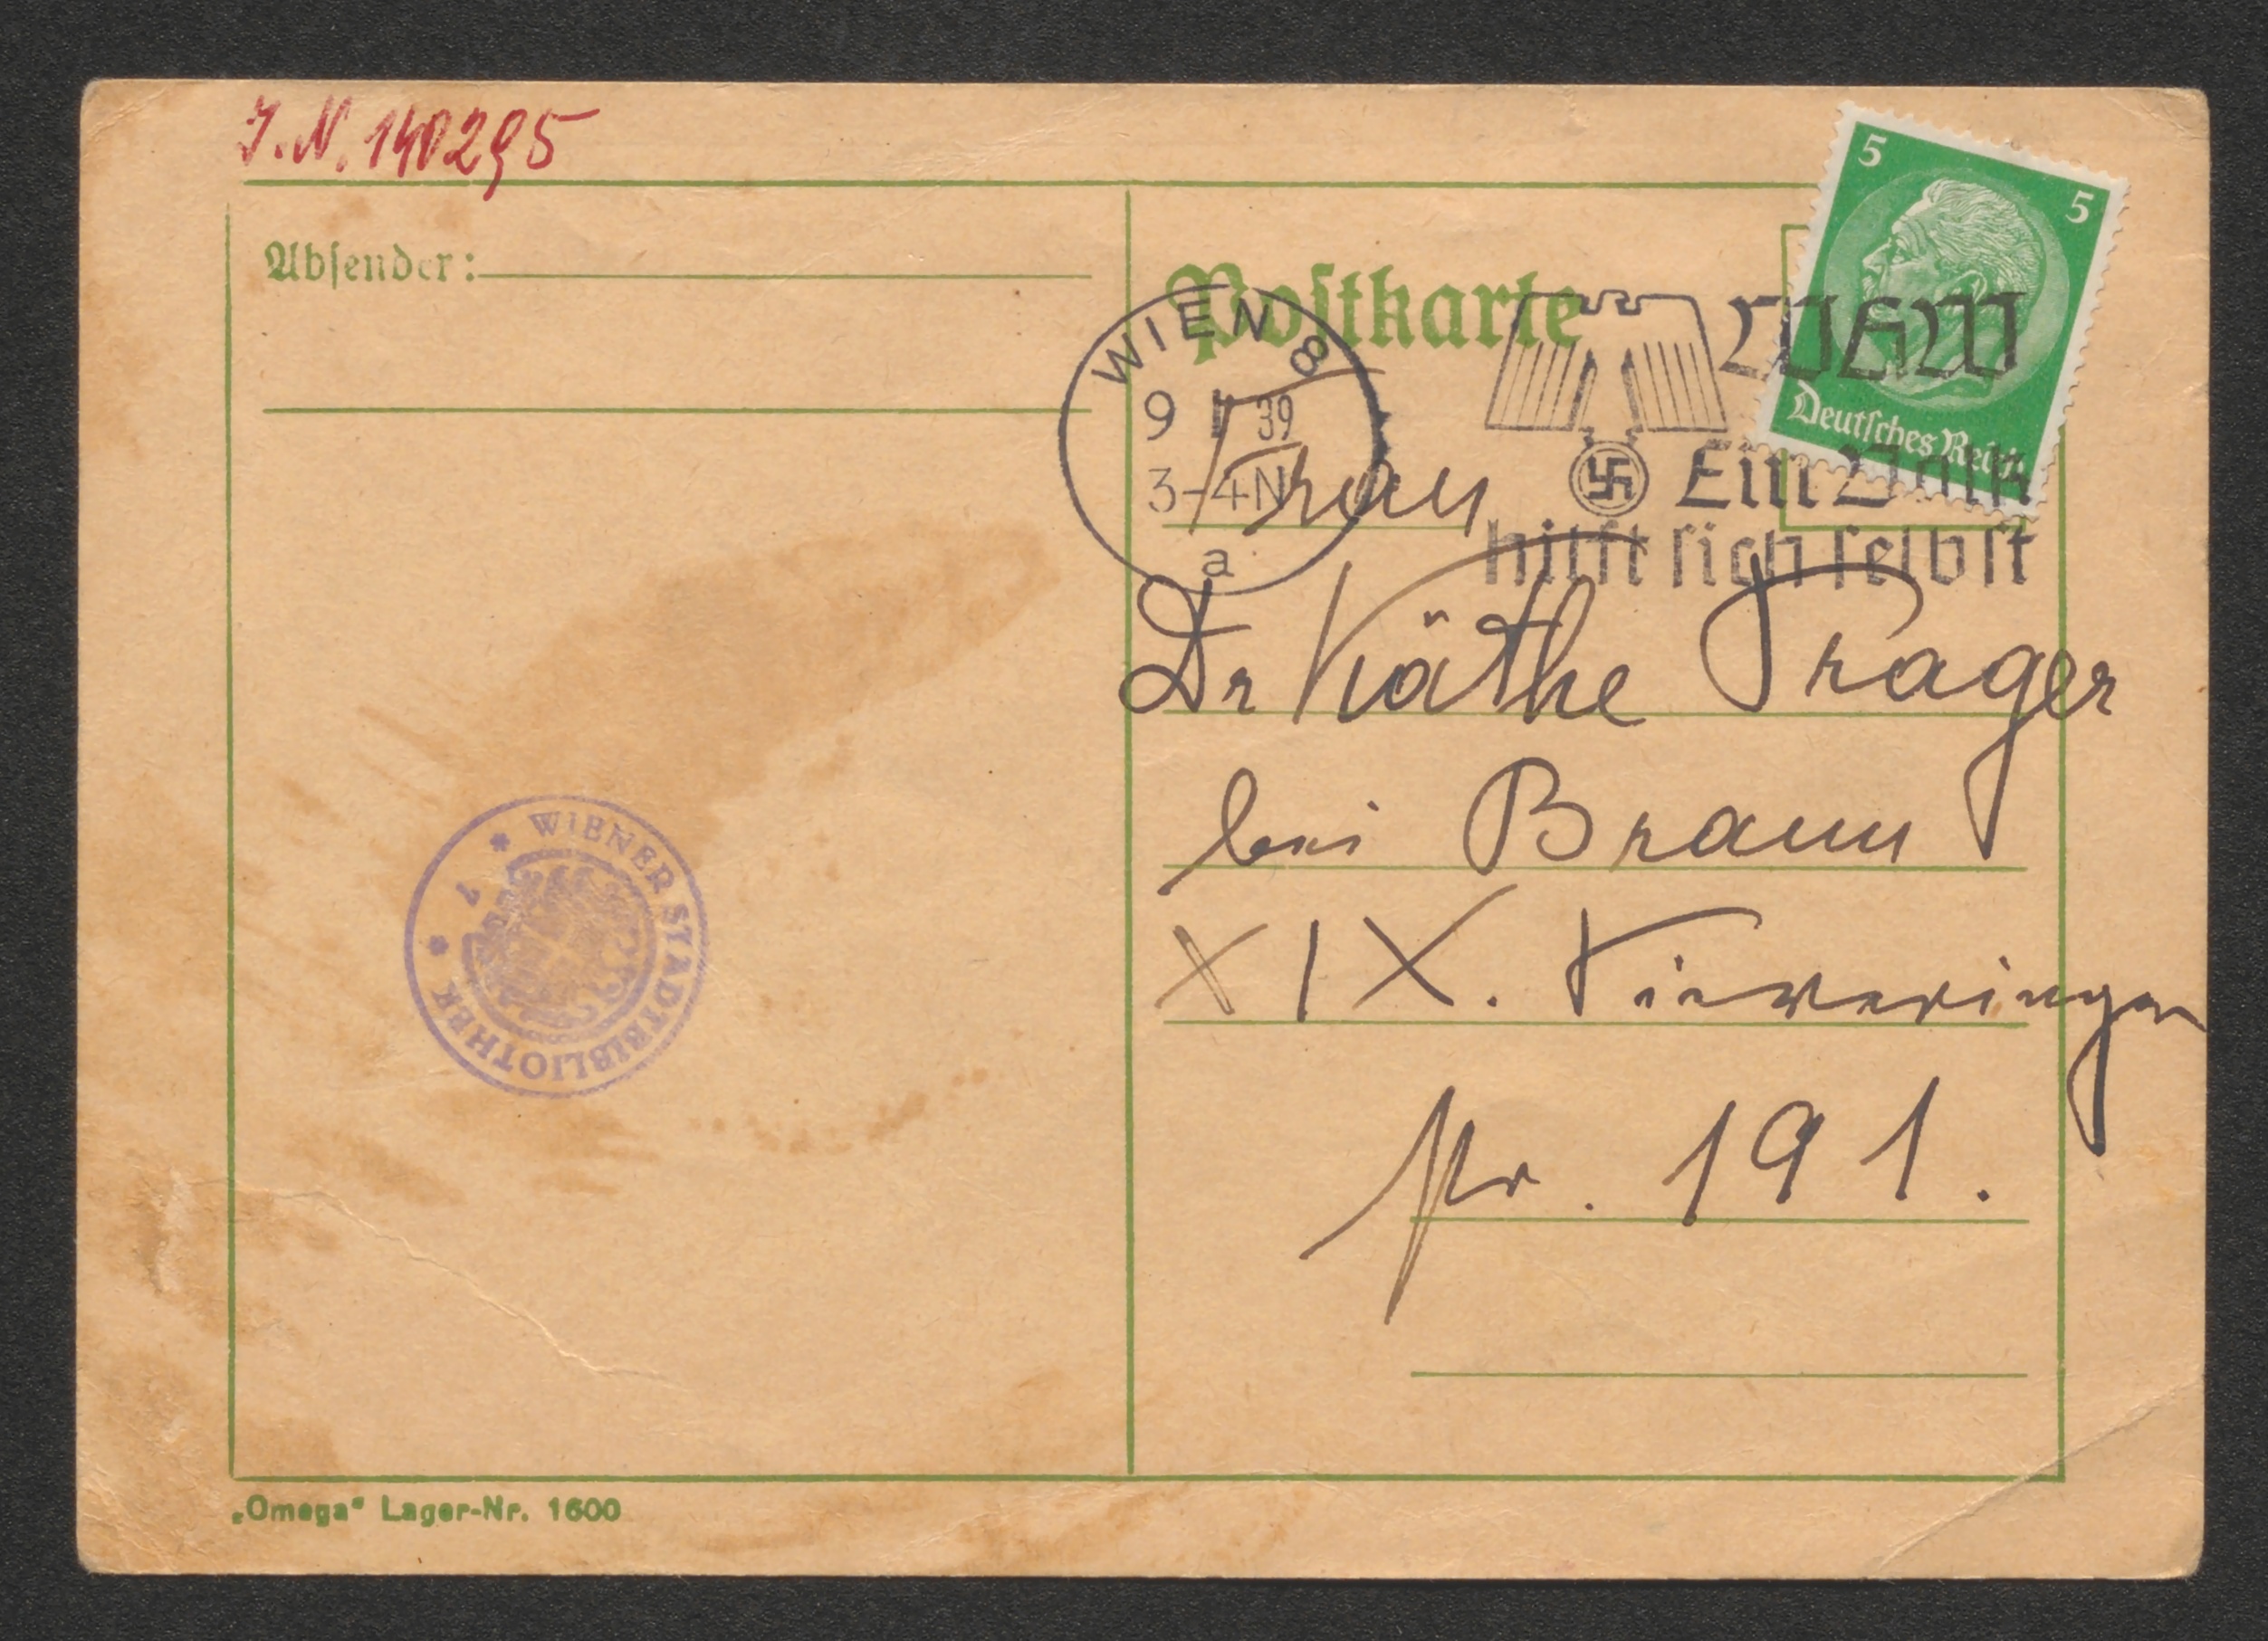 J.N. 140295
Absender:
Postkarte
WIEN 8
9 I 39
3-4N
a
WHW
Ein Volk
hilft sich selbst
5 5
Deutsches Reich
Frau
Dr Käthe Prager
bei Braun
XIX. Sieveringer
str. 191.
WIENER STADTBIBLIOTHEK
„Omega“ Lager-Nr. 1600